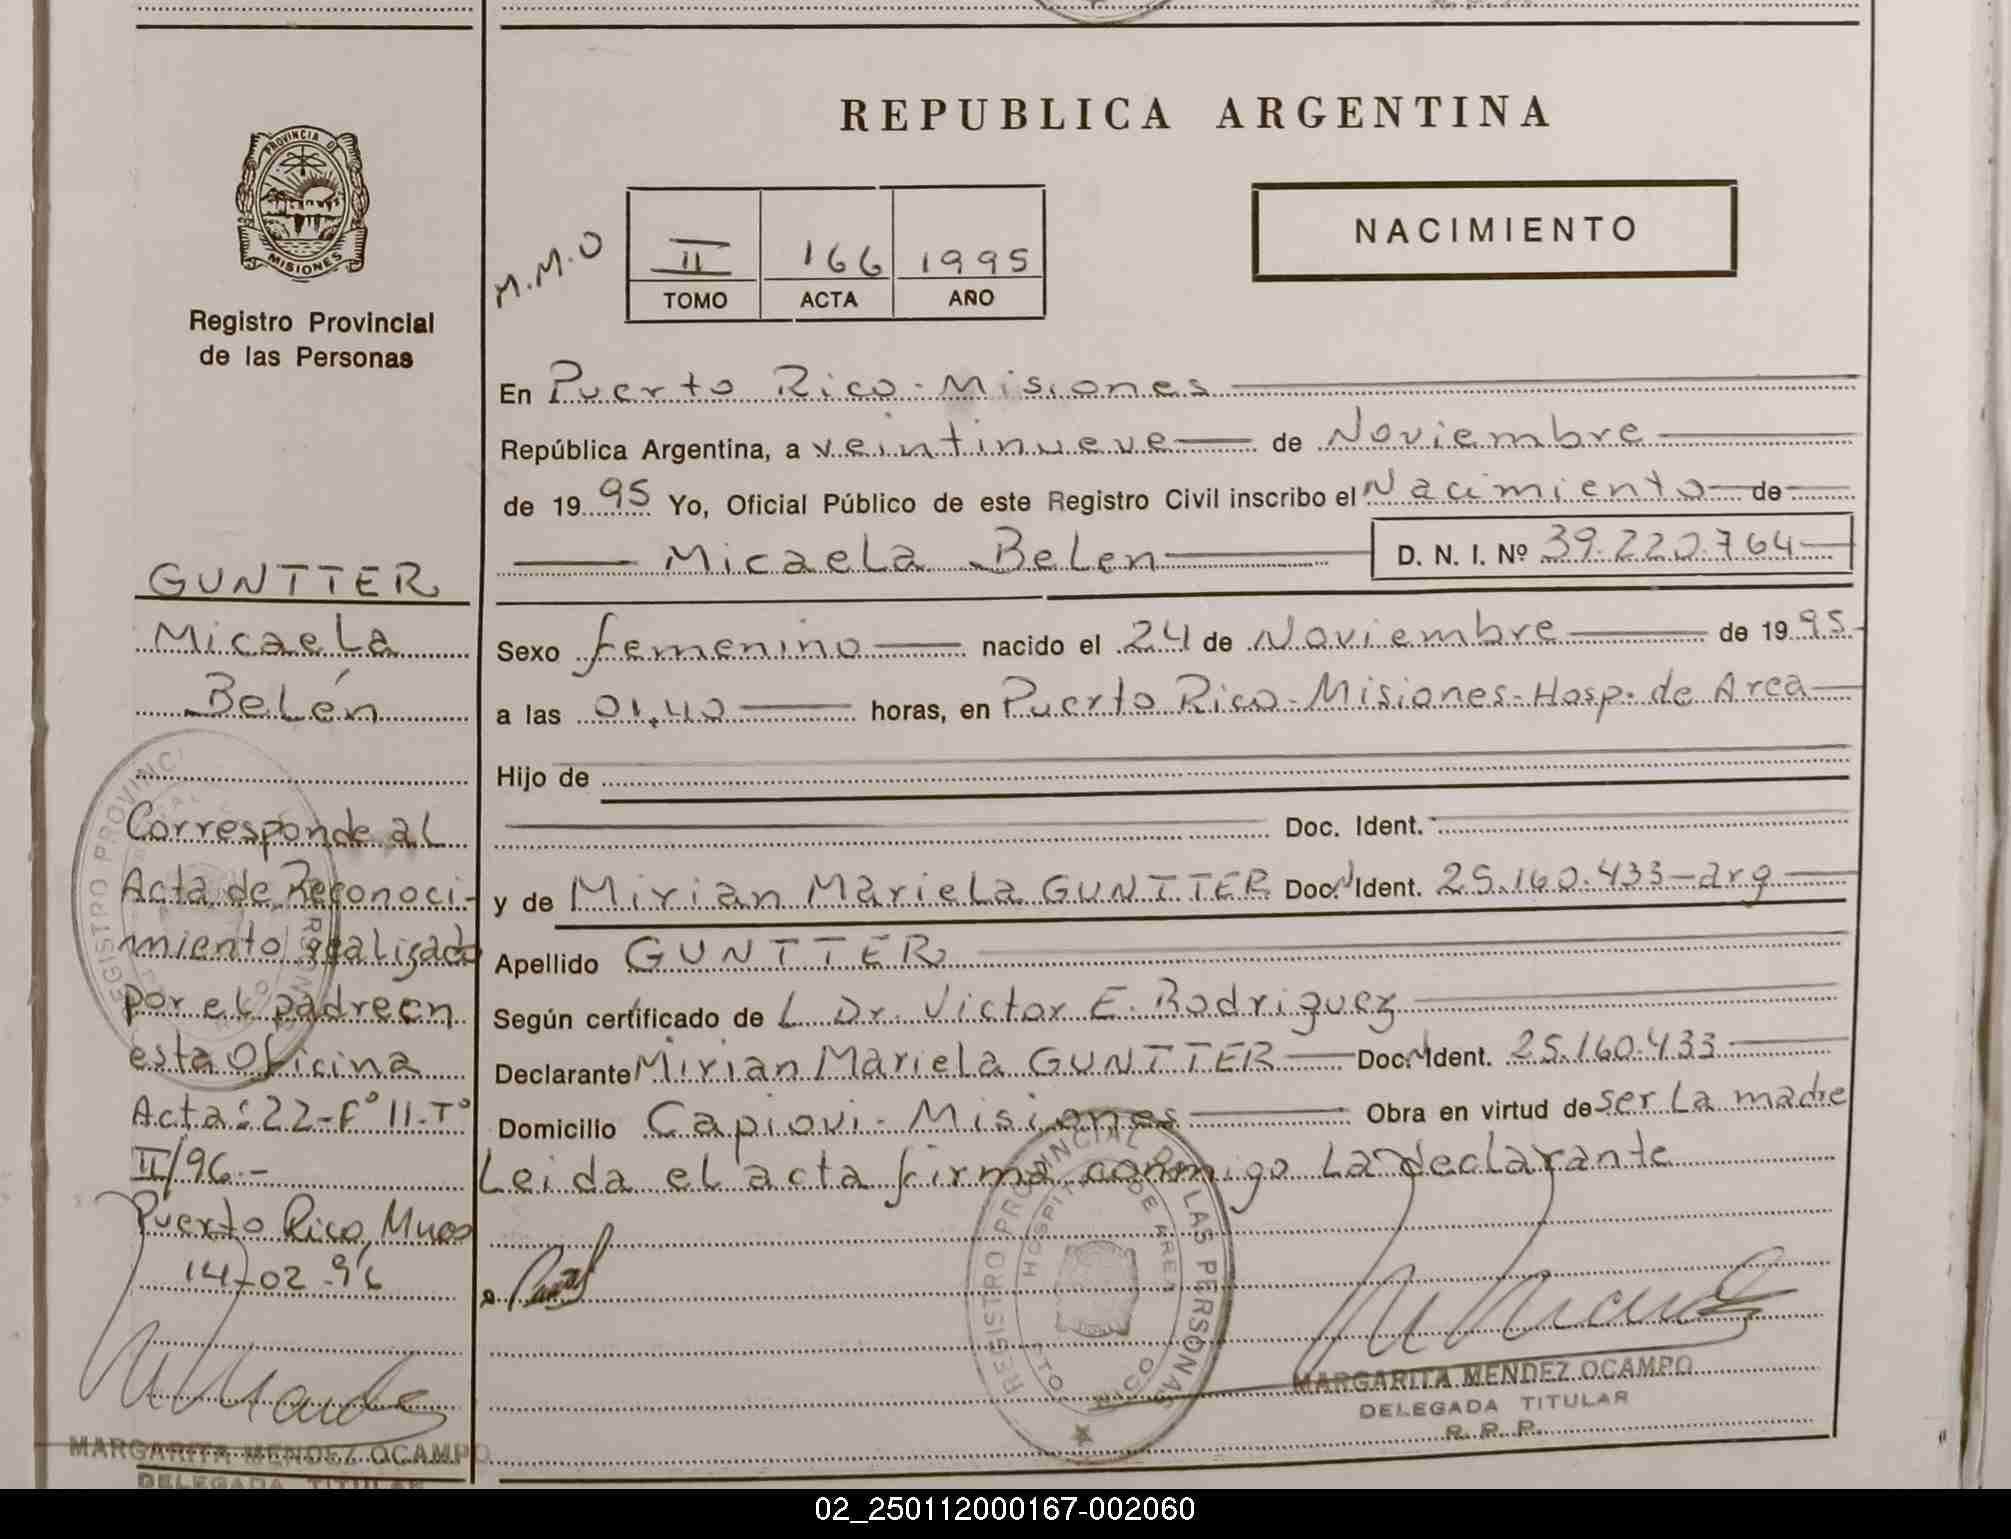 PROVINCIA D
MISIONES
Registro Provincial
de las Personas
GUNTTER
Micaela
Belén
Corresponde al
Acta de Reconoci-
miento realizado
por el padre en
esta Oficina
Acta: 22-Fº 11-Tº
II/96.-
Puerto Rico, Mnes
14-02-96
MARGARITA MENDEZ OCAMPO
DELEGADA TITULAR
REPUBLICA ARGENTINA
M.M.O
II 166 1995
TOMO ACTA AÑO
NACIMIENTO
En Puerto Rico - Misiones
República Argentina, a veintinueve de Noviembre
de 1995 Yo, Oficial Público de este Registro Civil inscribo el Nacimiento de
Micaela Belen D. N. I. Nº 39.220.764
Sexo femenino nacido el 24 de Noviembre de 1995
a las 01,40 horas, en Puerto Rico - Misiones - Hosp. de Area
Hijo de
Doc. Ident.
y de Mirian Mariela GUNTTER Doc. Ident. 25.160.433-arg
Apellido GUNTTER
Según certificado de L Dr. Victor E. Rodriguez
Declarante Mirian Mariela GUNTTER Doc. Ident. 25.160.433
Domicilio Capiovi - Misiones Obra en virtud de ser La madre
Leida el acta firma conmigo La declarante
REGISTRO PROVINCIAL DE LAS PERSONAS
HOSPITAL DE AREA
MARGARITA MENDEZ OCAMPO
DELEGADA TITULAR
R. P. P.
02_250112000167-002060